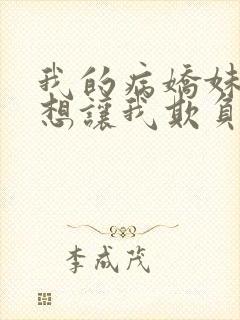 我的病嬌妹
想讓我欺負
李成茂